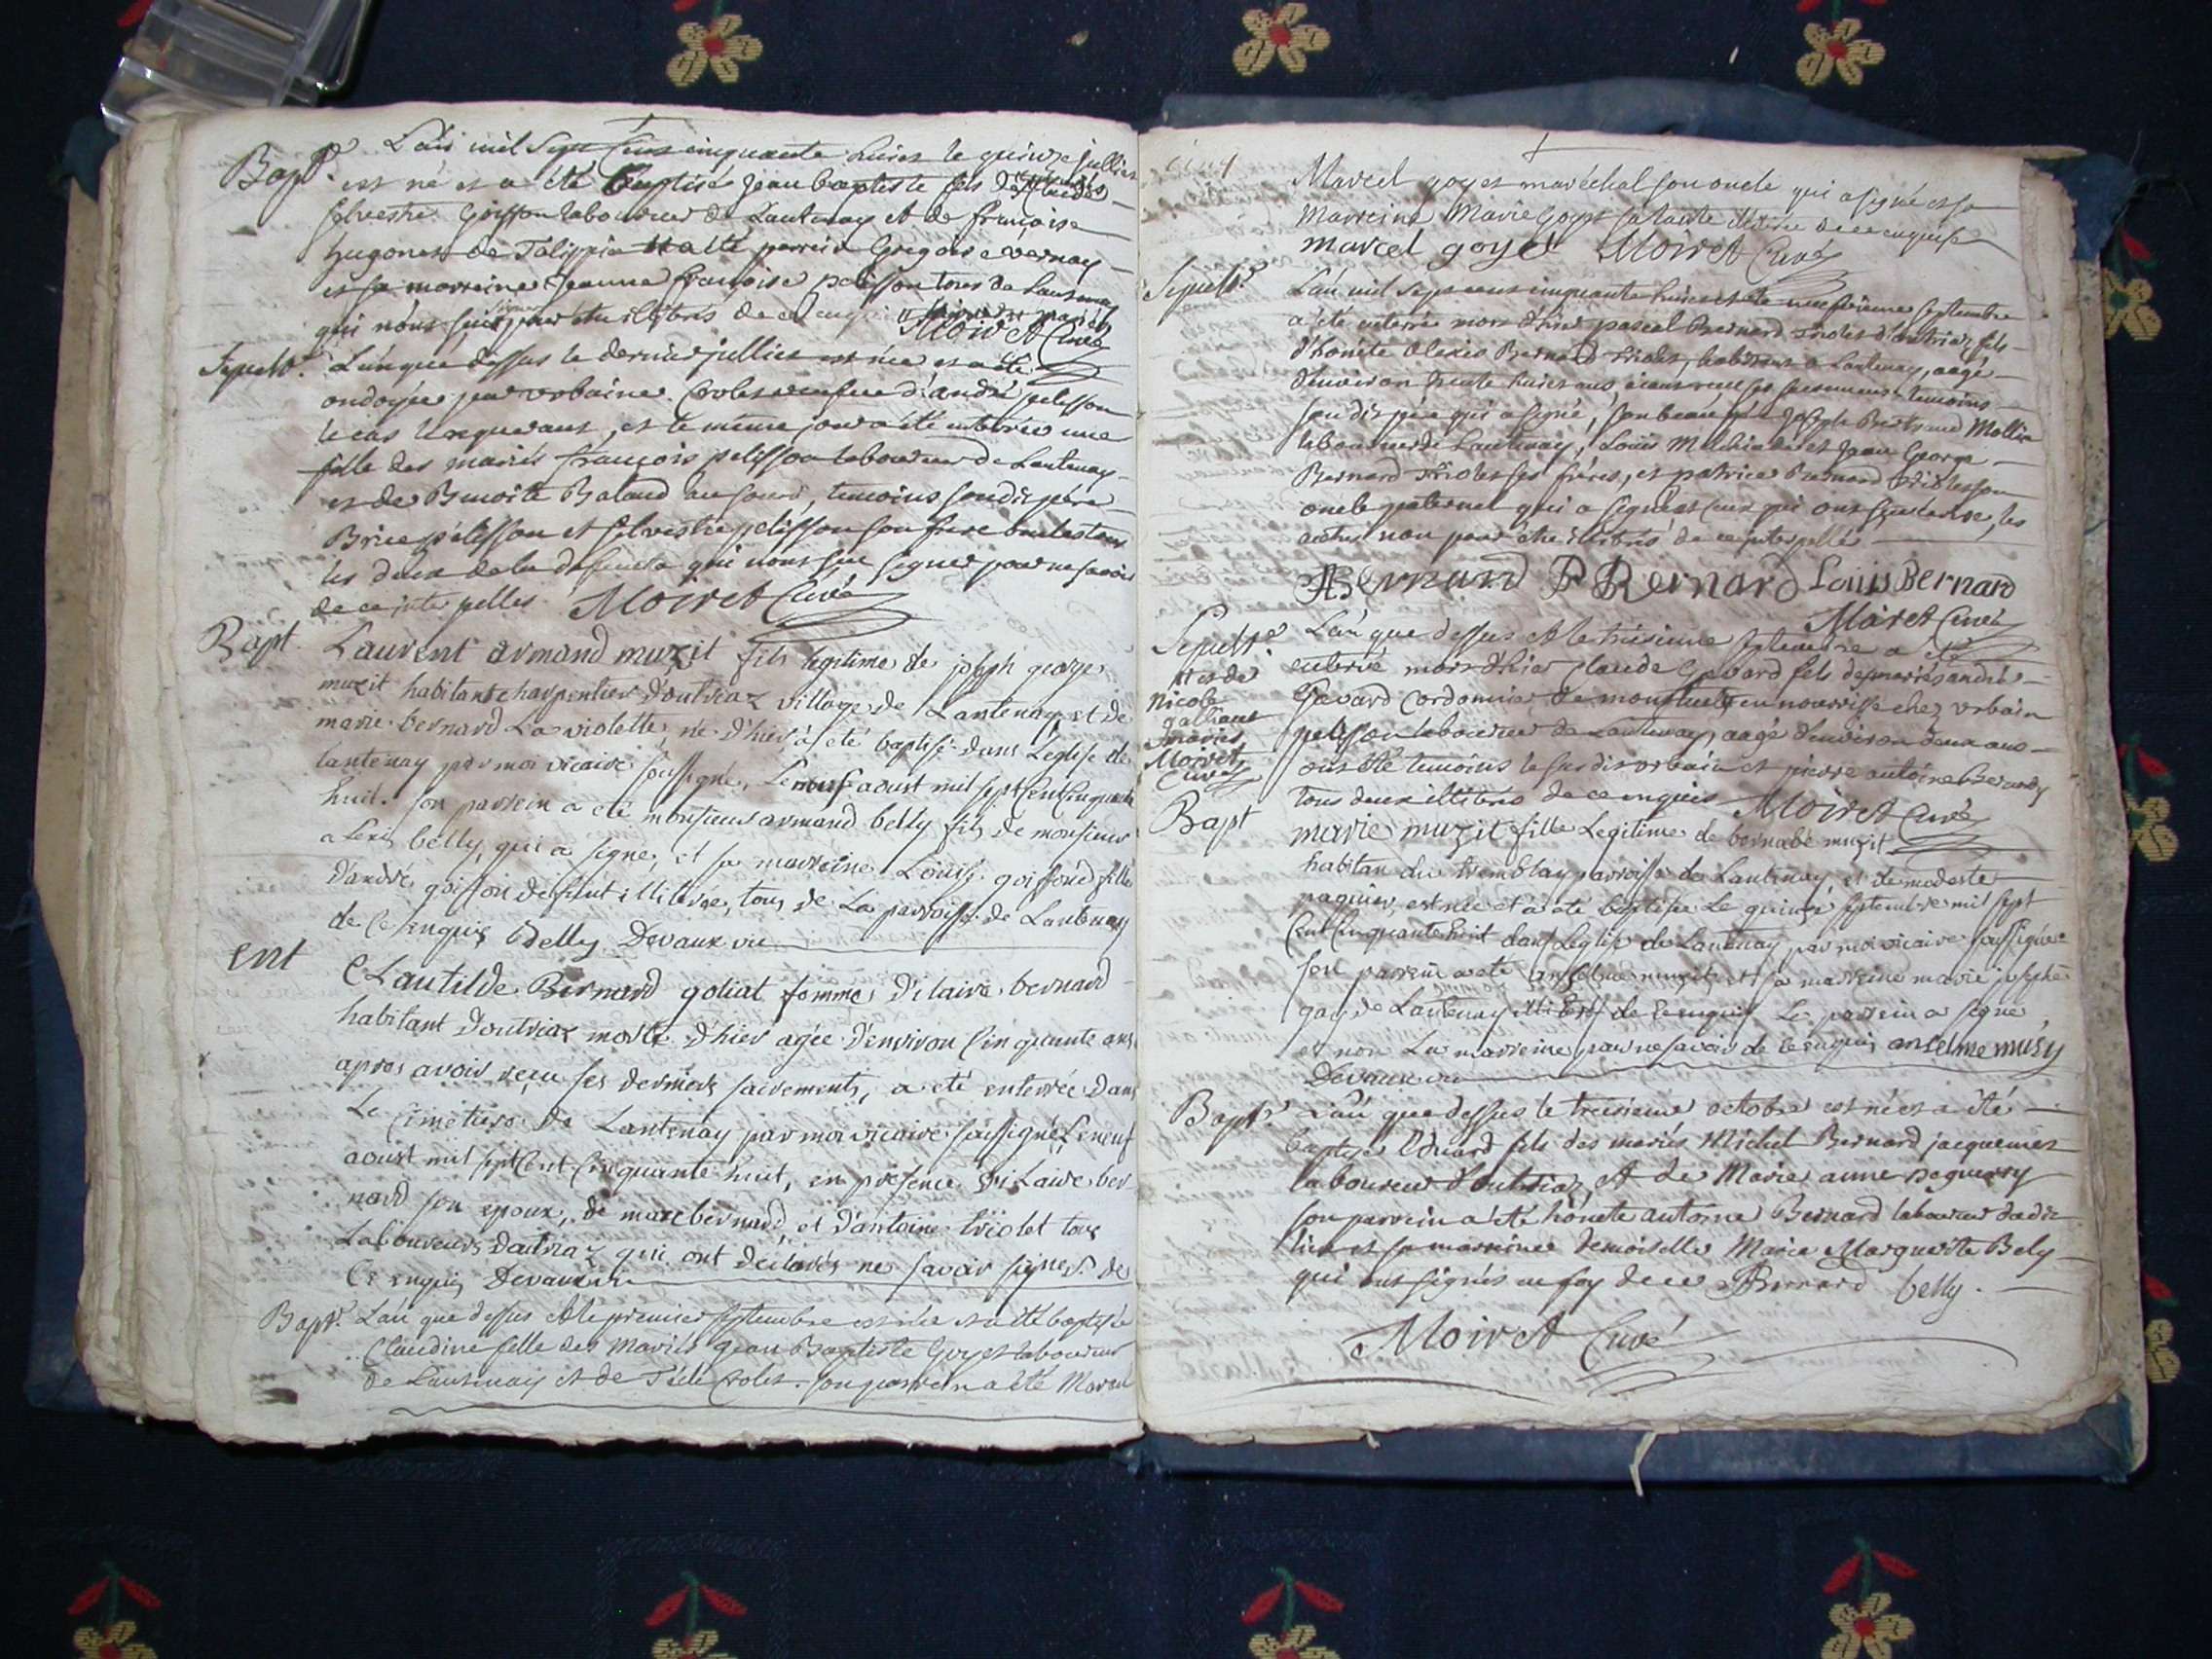 Bapt.
L'an mil sept cens cinquante huict le quinze jullier
est né et a été Baptisé Jean baptiste fils de Claude
silvestre Goiffon laboureur de Lantenay et de françoise
hugonet de Talippia a été parrein Gregoire vernay
et sa marreine Jeanne françoise pelisson tous de Lantenay
qui nons sceu signer pour etre illitrés de ce enquis
Moiret Curé
Sepult.
L'an que dessus le dernier jullier est née et a été
ondoyée par urbaine Crolet veufve d'andré pelisson
le cas le requerant, et le meme jour a été enterrée une
fille des mariés françois pelisson laboureur de Lantenay
et de Benoite Baland au four, temoins son dit père
Brice pelisson et silvestre pelisson son frere
les deux de la qui nons sceu signer pour ne savoir
de ce interpellés Moiret Curé
Bapt.
Laurent armand muzit fils legitime de joseph george
muzit habitant charpentier d'outriaz village de Lantenay et de
marie bernard La violette né d'hier a eté baptisé dans L'eglise de
lantenay par moi vicaire soussigné, Le neuf aoust mil sept Cent Cinquante
huit. son parrein a eté monsieur armand belly fils de monsieur
alexis belly, qui a signé, et sa marreine Louise goiffond fille
d'andré goiffon illiterée, tous de La parroisse de Lantenay
de Ce enquis Belly Devaux vic
ent
Clautilde Bernard goliat femme d'ilaire bernard
habitant d'outriaz morte d'hier agée d'environ Cinquante ans
apres avoir reçu ses derniers sacrements, a eté enterrée dans
Le Cimetiere de Lantenay par moi vicaire soussigné Le neuf
aoust mil sept Cent Cinquante huit, en presence d'iLaire ber
nard son epoux, de marc bernard, et d'antoine triolet tous
Laboureurs d'outriaz qui ont declarés ne savoir signer de
Ce enquis Devaux vic
Bapt.
L'an que dessus et le premier septembre est née et a été baptisée
Claudine fille des mariés Jean Baptiste Goyet laboureur
de Lantenay et de Crolet. son parrein a été Marcel
Marcel goyet maréchal son oncle qui a signé et sa
marreine Marie Goyet sa tante illitrée de ce enquise
marcel goyet Moiret Curé
Sepult.
L'an mil sept cens cinquante huict et le neufvieme septembre
a été enterré mort d'hier pascal Bernard Triolet d'outriaz fils
d'honete alexis Bernard Triolet, habitant a Lantenay, aagé
d'environ trente huict ans ayant receu ses sacremens temoins
son dit père qui a signé, son beau père Joseph Bertrand Mollie
laboureur de Lantenay, Louis Melchiade et Jean George
Bernard Triolet ses frères, et patrice Bernard Triolet son
oncle paternel qui a signé et ceux qui ont sceu ecrire, les
autres non pour être illitrés de ce interpellés
ABernard PBernard Louis Bernard
Moiret Curé
Sepult.
L'an que dessus et le treisieme septembre a été
enterré mort d'hier Claude Gavard fils des mariés andré
Gavard Cordonnier de en nourrisse chez urbain
pelisson laboureur de Lantenay, aagé d'environ deux ans
ont été temoins le susdit urbain et pierre antoine
tous deux illitrés de ce enquis Moiret Curé
et de
Nicole
galliane
mariés
Moiret
Curé
Bapt
marie muzit fille Legitime de bernabé muzit
habitan du tremblay parroisse de Lantenay, et de modeste
paquier, est née et a eté baptisée Le quinze septembre mil sept
Cent Cinquante huit dans Leglise de Lantenay par moi vicaire soussigné
son parrein a eté anselme muzit et sa marreine marie josephe
gay de Lantenay de Ce enquis Le parrein a signé,
et non La marreine pour ne savoir de Ce enquis anselme musy
Devaux vic
Bapt.
L'an que dessus le treisieme octobre est né et a été
baptisé Eduard fils des mariés Michel Bernard jacquemet
laboureur d'outriaz, et de Marie anne peguerry
son parrein a été honete antoine Bernard laboureur dudit
lieu et sa marreine demoiselle Marie Marguerite Bely
qui ont signés en foy de ce ABernard belly.
Moiret Curé